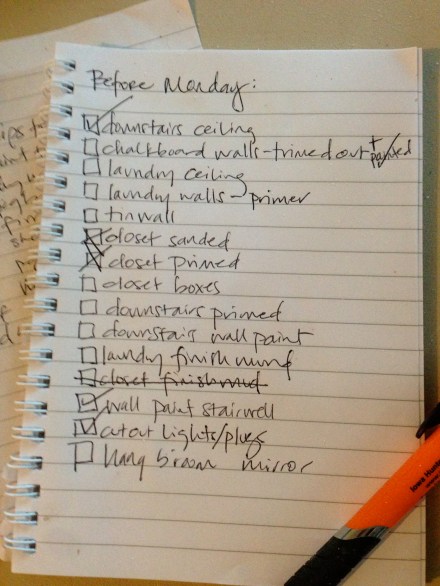 Before Monday:
downstairs ceiling
chalkboard walls - trimed out + painted
laundry ceiling
laundry walls - primer
tin wall
closet sanded
closet primed
closet boxes
downstairs primed
downstairs wall paint
laundry finish mund
closet finish mud
wall paint stairwell
cutout lights/plugs
hang b'room mirror